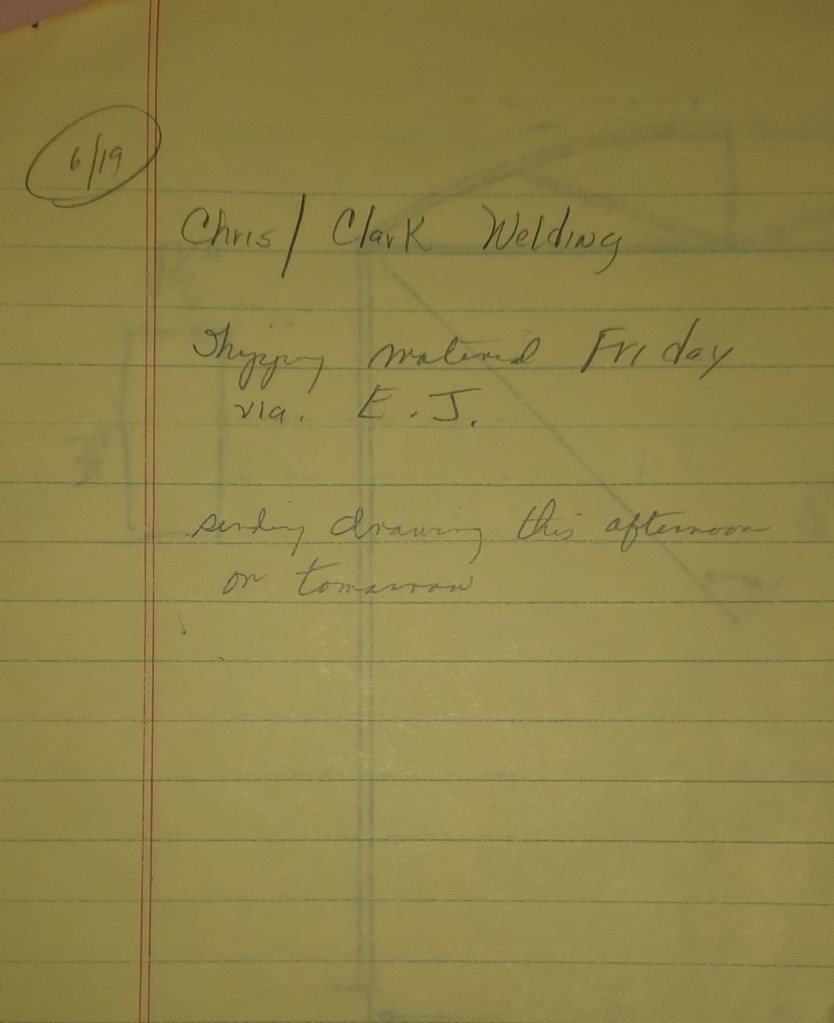 6/19
Chris / Clark Welding
Shipping material Friday
via. E.J.
sending drawing this afternoon
or tomorrow